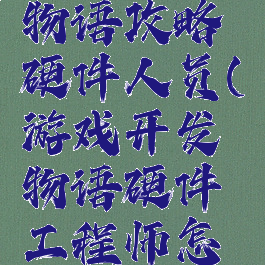 物语攻略
硬件人员(
游戏开发
物语硬件
工程师怎